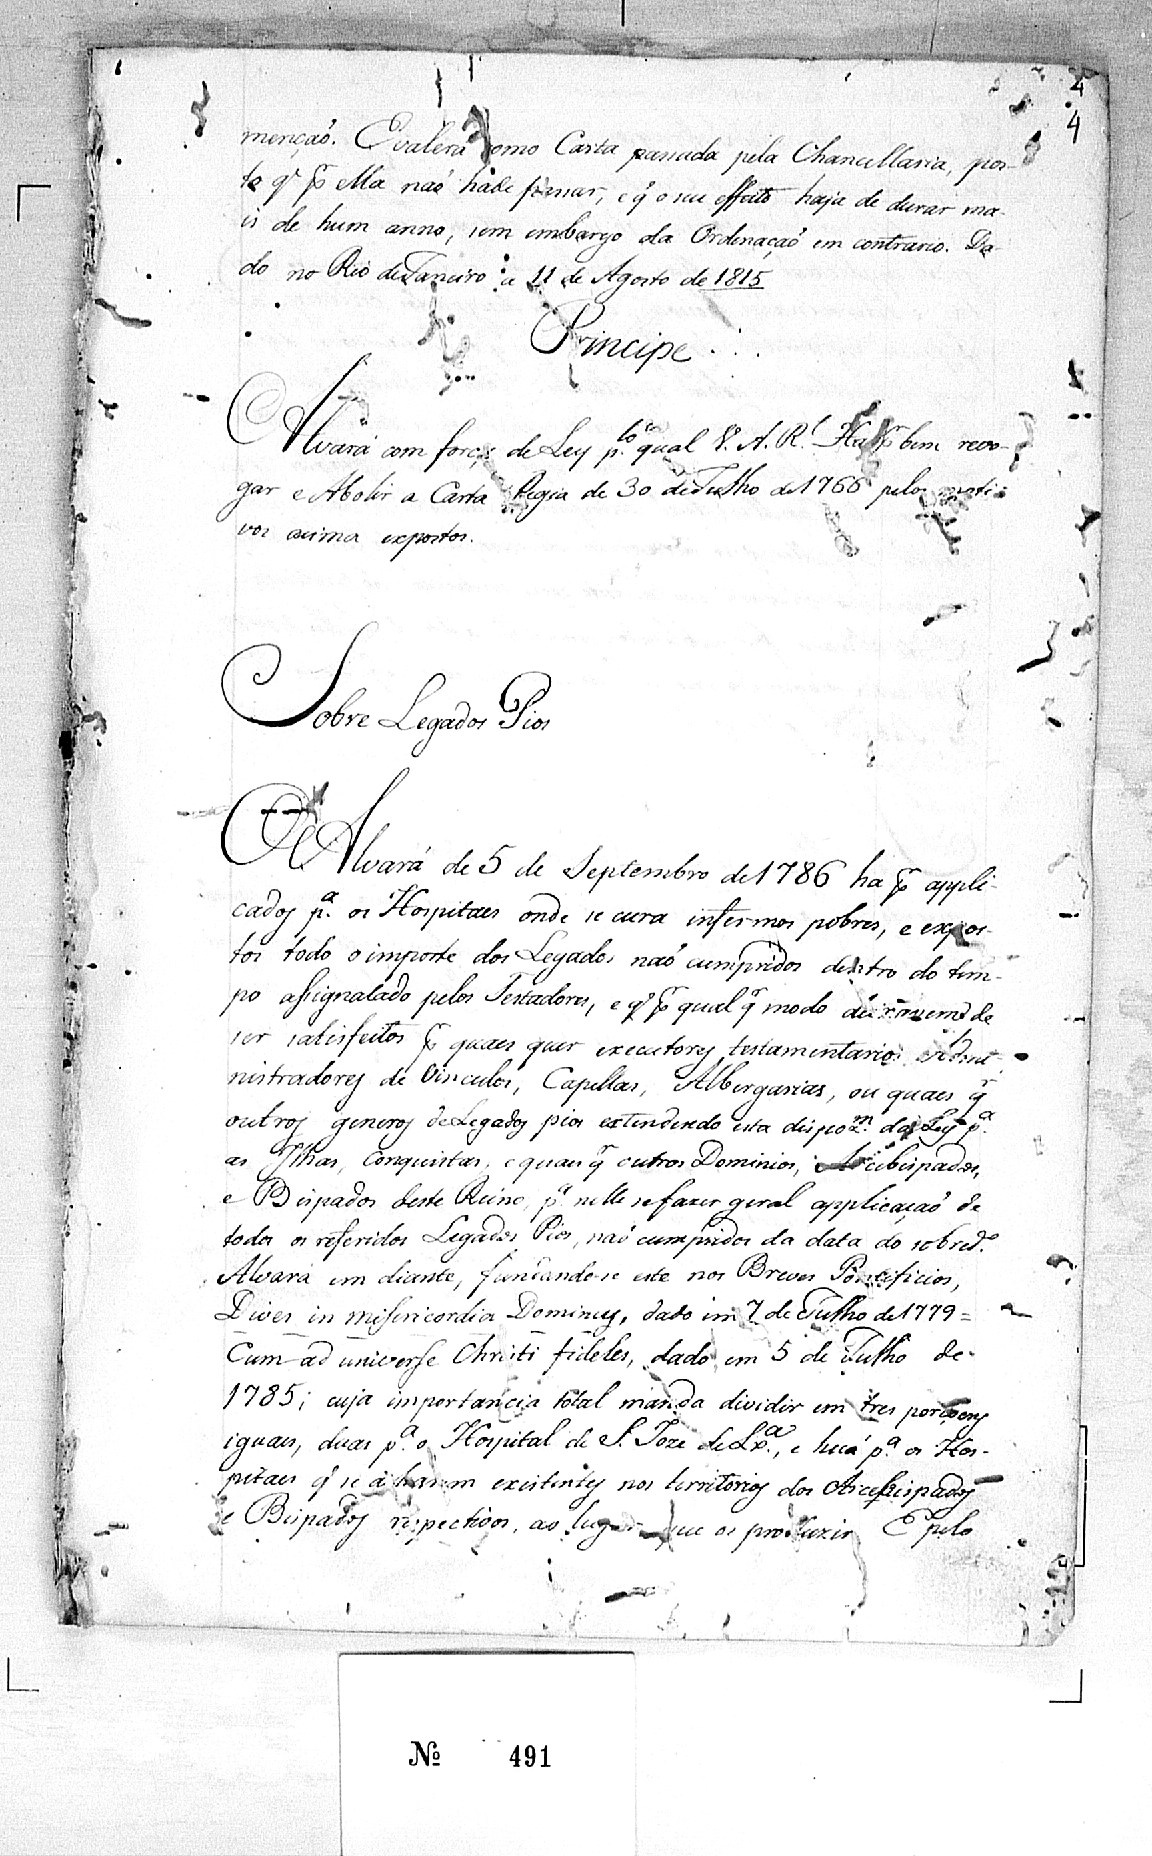 4
4
menção. E valerá como Carta passada pela Chancellaria, pos-
to q̃ p̃ ella naõ hade passar, e q̃ o seu effeito haja de durar ma-
is de hum anno, sem embargo da Ordenaçaõ em contrario. Da-
do no Rio de Janeiro a 11 de Agosto de 1815
Principe . . .
Alvará com força de Ley p.lo qual V. A. R.l Ha p̃ bem revo-
gar e Abolir a Carta Regia de 30 de Julho de 1766 pelos moti-
vos acima expostos.
Sobre Legados Pios
O Alvará de 5 de Septembro de 1786 ha p̃ appli-
cados p.a os Hospitaes onde se cura infermos pobres, e expos-
tos todo o importe dos Legados naõ cumpridos dentro do tem-
po assignalado pelos Testadores, e q̃ p̃ qual q̃ modo deixarem de
ser satisfeitos p̃ quaes quer executores testamentarios
nistradores de Vinculos, Capellas, Albergarias, ou quaes q̃
outros generos de Legados pios extendendo esta dispoz.m da Ley p.a
as Ilhas, Conquistas, e quaes q̃ outros Dominios, Arcebispados,
e Bispados deste Reino, p.a nelle se fazer geral applicaçaõ de
todos os referidos Legados Pios, naõ cumpridos da data do sobred.o
Alvará em diante, fundando-se este nos Breves Pontificios,
Dives in misericordia Dominus, dado im 7 de Julho de 1779 =
Cum ad universe Christi fideles, dado em 5 de Julho de
1785; cuja importancia total manda dividir em tres porçoens
iguaes, duas p.a o Hospital de S. Joze de Lx.a, e huã p.a os Hos-
pitaes q̃ se acharem existentes nos territorios dos Arcebispados
e Bispados respectivos, ao lugar que os produzir E pelo
Nº 491